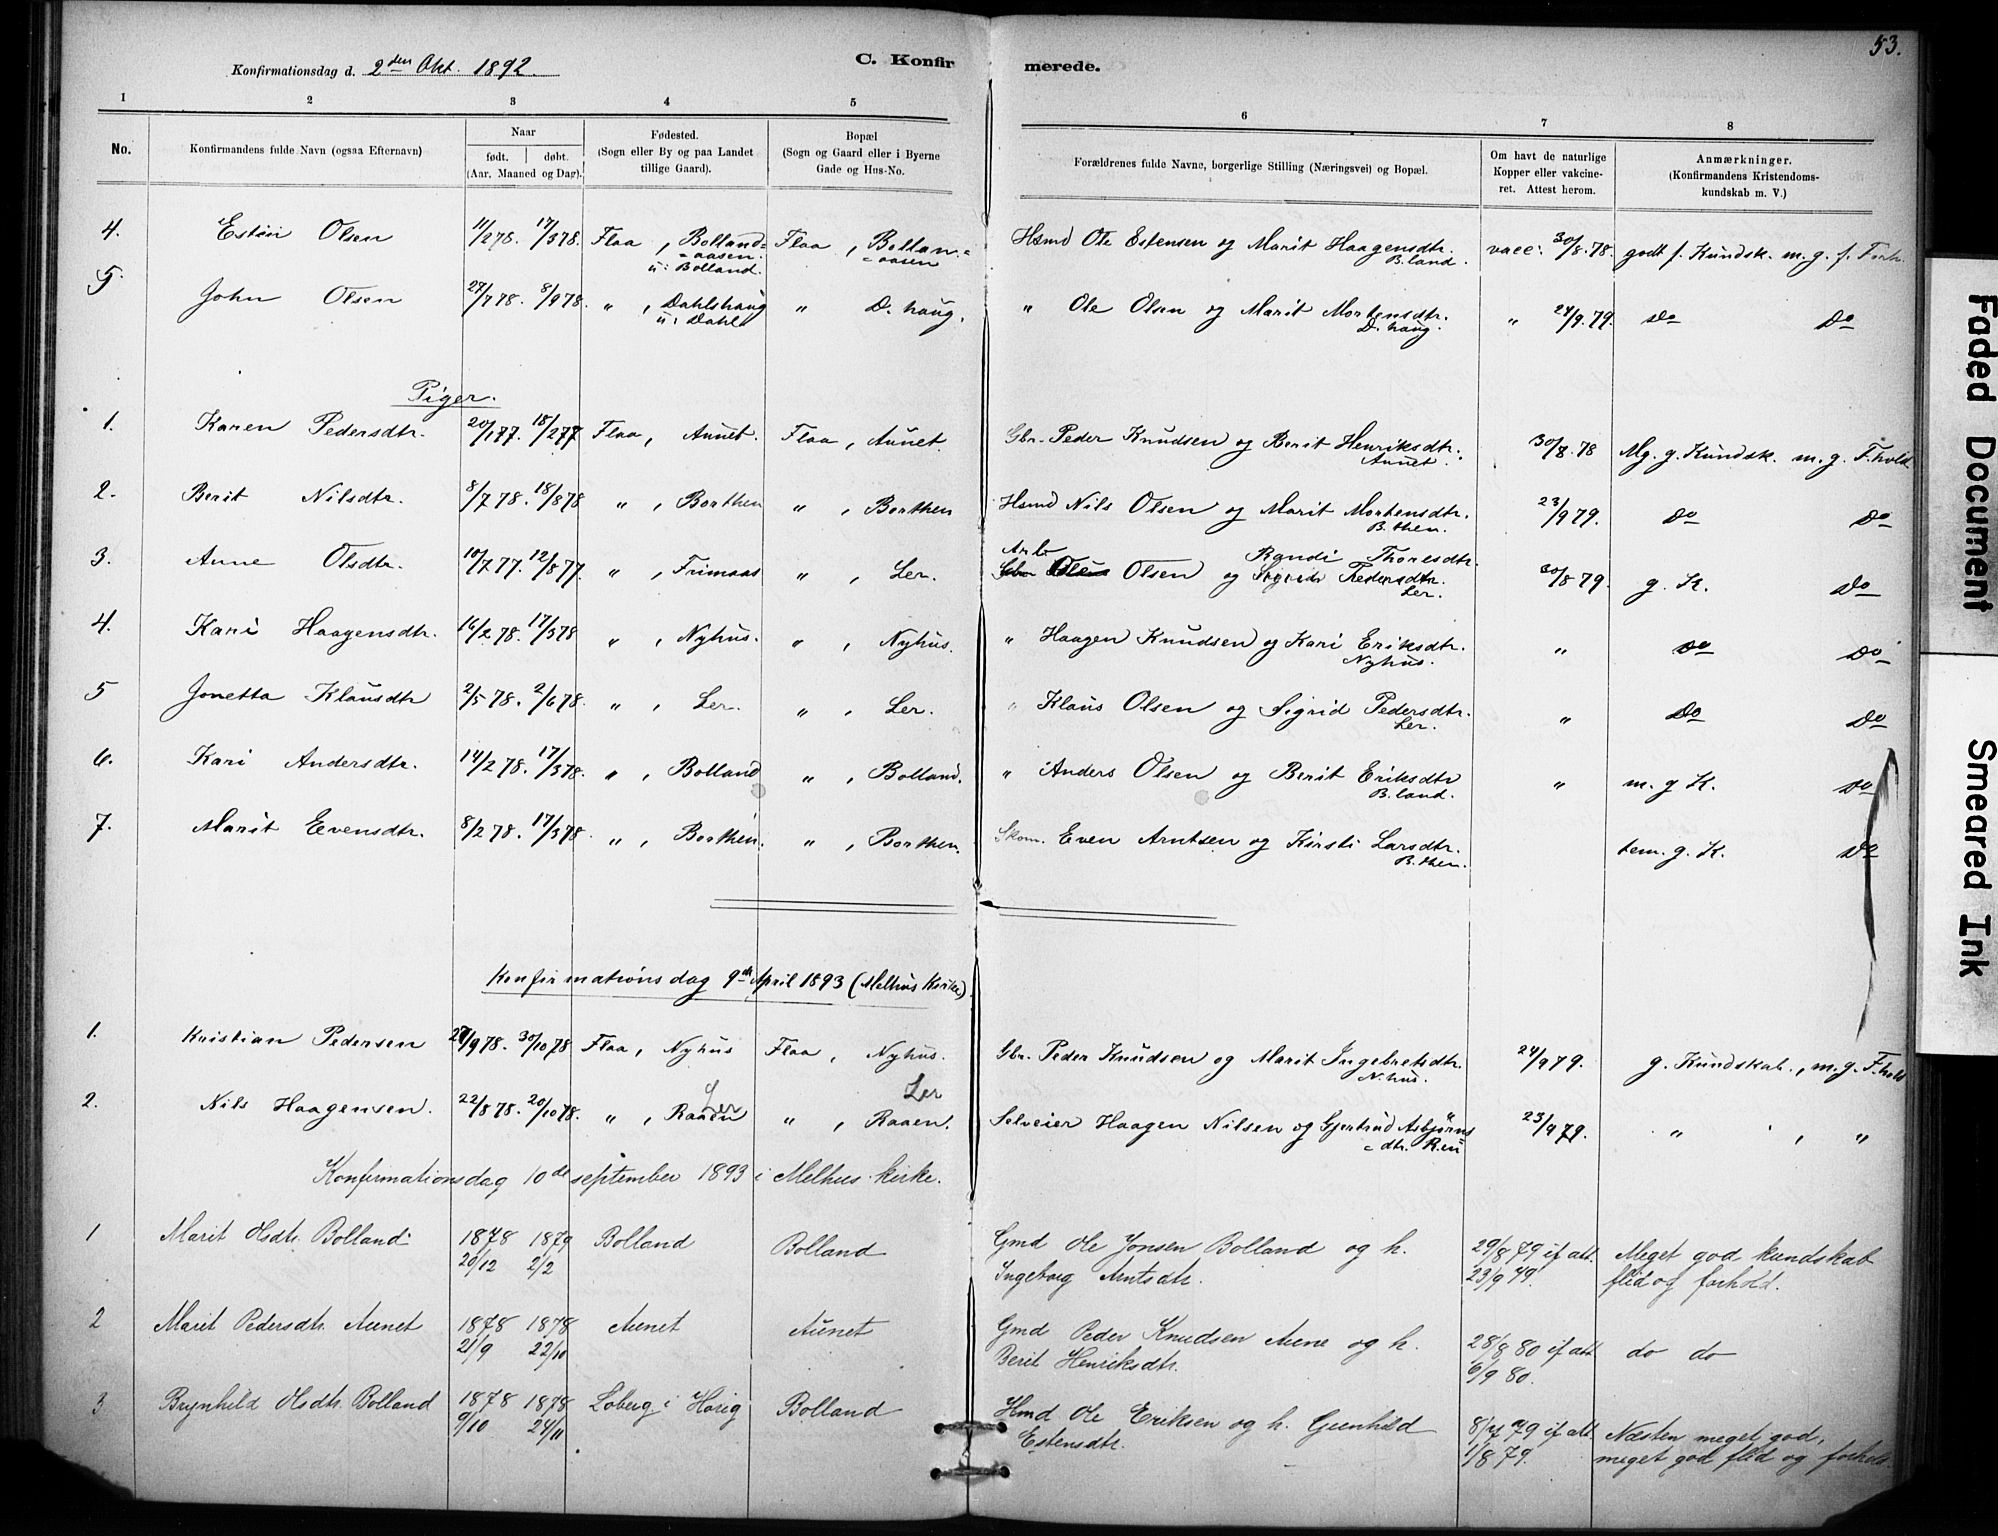 53.
Konfirmationsdag d. 2den Okt. 1892.
C. Konfirmerede.
1 2 3 4 5 6 7 8
No.
Konfirmandens fulde Navn (ogsaa Efternavn)
Naar
født. døbt.
(Aar. Maaned og Dag).
Fødested.
(Sogn eller By og paa Landet
tillige Gaard).
Bopæl
(Sogn og Gaard eller i Byerne
Gade og Hus-No.
Forældrenes fulde Navne, borgerlige Stilling (Næringsvei) og Bopæl.
Om havt de naturlige
Kopper eller vakcine-
ret. Attest herom.
Anmærkninger.
(Konfirmandens Kristendoms-
kundskab m. V.)
4. Estin Olsen 11/2 78. 17/3 78. Flaa, Bolland= Flaa, Bollan-= Hsmd Ole Estensen og Marit Haagensdtr. vacc. 30/8. 78. godt f. Kundsk. m. g. f. Forh.
=aasen. =aasen B.land.
u: Bolland.
5. John Olsen 27/7 78. 8/9 78. " , Dahlshaug " D. haug. " Ole Olsen og Marit Mortensdtr. " 24/9. 79. do Do
u: Dahl D. haug.
Piger.
1. Karen Pedersdtr. 20/1 77. 18/2 77 Flaa, Aunet. Flaa, Aunet. Gbr. Peder Knudsen og Berit Henriksdtr. 30/8. 78 Mg. g. Kundsk. m. g. F.hold
Aunet.
2. Berit Nilsdtr. 8/7 78. 18/8 78 " , Borthen " , Borthen Hsmd Nils Olsen og Marit Mortensdtr. 23/9 79. Do Do
B. then.
Arb. Randi Thoresdtr.
3. Anne Olsdtr. 10/7 77. 12/8 77. " , Frimaas " , Ler. Gbr Olsen og Sigrid Pedersdtr. 30/8 79. g. K. Do
Ler.
4. Kari Haagensdtr. 16/2 78. 17/3 78 " , Nyhus. " , Nyhus. " Haagen Knudsen og Kari Eriksdtr. " Do Do
Nyhus.
5 Jonetta Klausdtr 2/5 78. 2/6 78. " , Ler. " , Ler. " Klaus Olsen og Sigrid Pedersdtr. " Do Do
Ler.
6. Kari Andersdtr. 14/2 78. 17/3 78. " , Bolland " , Bolland. " Anders Olsen og Berit Eriksdtr " m. g K. Do
B. land.
7. Marit Evensdtr. 8/2 78. 17/3 78. " , Borthen. " , Borthen. Skom. Even Arntsen og Kirsti Larsdtr. tem. g. K. Do
B. then.
Konfirmationsdag 9de April 1893 (Melhus Kirke)
1. Kristian Pedersen 27/9 78. 30/10 78 Flaa, Nyhus Flaa, Nyhus. Gbr. Peder Knudsen og Marit Ingebretsdtr. 24/9 79. g. Kundskab., m. g. F.hold
N. hus.
Ler Ler
2. Nils Haagensen. 22/8 78. 20/10 78. " , Raaen " , Raaen. Selveier Haagen Nilsen og Gjertrud Asbjørns 23/9 79. " , "
=dtr. R.en
Konfirmationsdag 10de september 1893 i Melhus kirke.
1 Marit Olsdtr. Bolland 1878 1879 Bolland Bolland Gmd Ole Jonsen Bolland og h. 29/8 79 if att. Meget god kundskab
20/12 2/2 Ingeborg Arntsdtr. 23/9 79. flid og forhold.
2 Marit Pedersdtr. Aunet 1878 1878 Aunet Aunet Gmd Peder Knudsen Aune og h. 28/8 80 if att do do
21/9 22/10 Berit Henriksdtr. 6/9 80.
3 Brynhild Olsdtr. Bolland 1878 1878 Loberg i Hørig Bolland Hmd Ole Eriksen og h. Gunhild 8/7 79 if att Næsten meget god,
9/10 24/11 Estensdtr. 1/8 79. meget god flid og forhold.
Faded Document
Smeared Ink